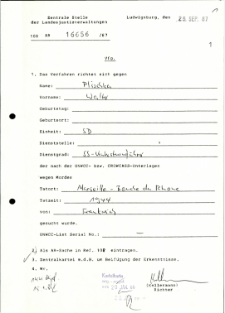 Zentrale Stelle
der Landesjustizverwaltungen
Ludwigsburg, den 25. SEP. 87
108 AR 16656 /87
1
Vfg.
1. Das Verfahren richtet sich gegen
Name: Plischka
Vorname: Walter
Geburtstag:
Geburtsort:
Einheit: SD
Dienststelle:
Dienstgrad: SS-Unterscharführer
der nach den UNWCC- bzw. CROWCASS-Unterlagen
wegen Mordes
Tatort: Marseille - Bouche du Rhone
Tatzeit: 1944
von: Frankreich
gesucht wurde.
UNWCC-List Serial No.: -
2. Als AR-Sache in Ref. eintragen.
3. Zentralkartei m.d.B. um Beifügung der Erkenntnisse.
4. Wv.
Richter